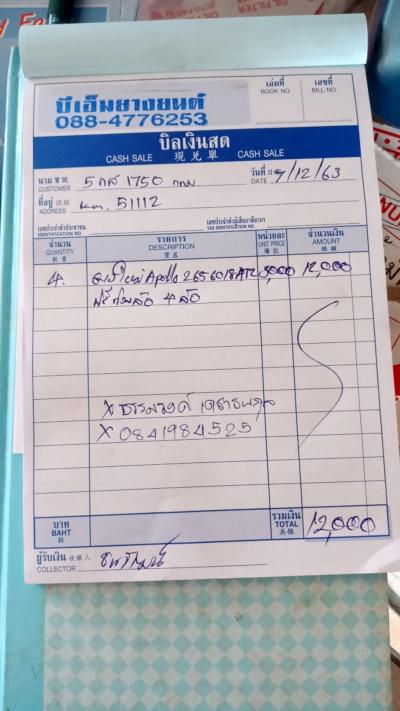 บีเอ็มยางยนต์
088-4776253
เล่มที่
BOOK NO.
เลขที่
BILL NO.
บิลเงินสด
CASH SALE 現兑單 CASH SALE
นาม
CUSTOMER 5 กส 1750 กทม.
วันที่
DATE 7/12/63
ที่อยู่
ADDRESS km. 51112
เลขประจำตัวประชาชน
IDENTIFICATION NO.
เลขประจำตัวผู้เสียภาษีอากร
TAX IDENTIFICATION NO.
จำนวน
QUANTITY
รายการ
DESCRIPTION
หน่วยละ
UNIT PRICE
จำนวนเงิน
AMOUNT
4. Apollo 2656018 3,000 12,000
4 ล้อ
X
X 0841984525
บาท
BAHT
รวมเงิน
TOTAL 12,000
ผู้รับเงิน 收銀人
COLLECTOR